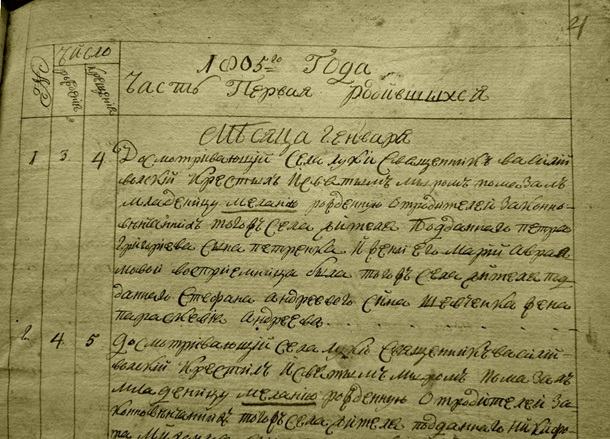 4
Число
№
рождения
крещения
1805го Года
Часть Первая Родившихся
Мѣсяца Генваря
1 3. 4 Досмотривающий Села Луки Священникъ Василий
крестилъ И святымъ миромъ помазалъ
младеницу меланию рожденную Отродителей Законно-
венчанныхъ тогожъ Села жителя Подданного петра
Григориева Сына петренка И жени Его Марии Авраа
мовой восприемница была тогожъ Села жителя под
данного Стефана Андреевого Сина Шевченка жена
Параскевия Андреева
2. 4. 5 Досмотривающий Села Луки Священникъ Василий
крестилъ И святымъ миромъ Помазалъ
младеницу меланию рожденную Отродителей За
конновенчанныхъ тогожъ Села жителя подданного